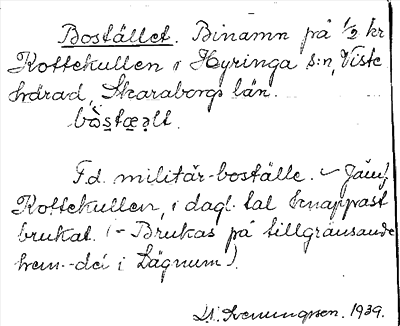 Bostället. Binamn på 1/2 kr
Kottekullen i Hyringa s:n, Viste
härad, Skaraborgs län.
bòs̠tæ̠ḷt.
F.d. militär-boställe. ~ Jämf.
Kottekullen, i dagl. tal knappast
brukat. (- Brukas på tillgränsande
hem.-del i Lägnum).
Svenungsson. 1939.